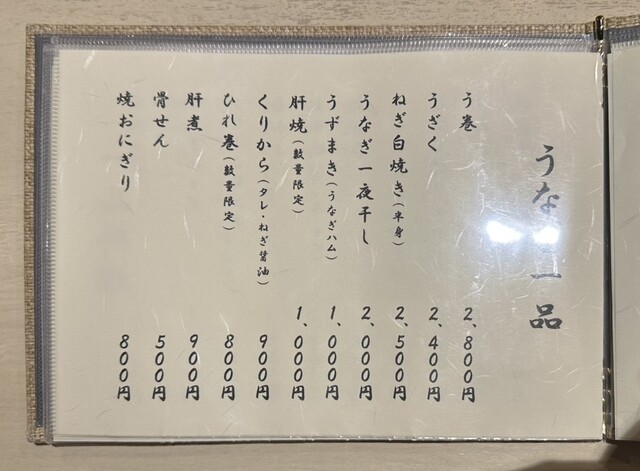 うな一品
う巻 2,800円
うざく 2,400円
ねぎ白焼き(半身) 2,500円
うなぎ一夜干し 2,000円
うずまき(うなぎハム) 1,000円
肝焼(数量限定) 1,000円
くりから(タレ・ねぎ醤油) 900円
ひれ巻(数量限定) 800円
肝煮 900円
骨せん 500円
焼おにぎり 800円